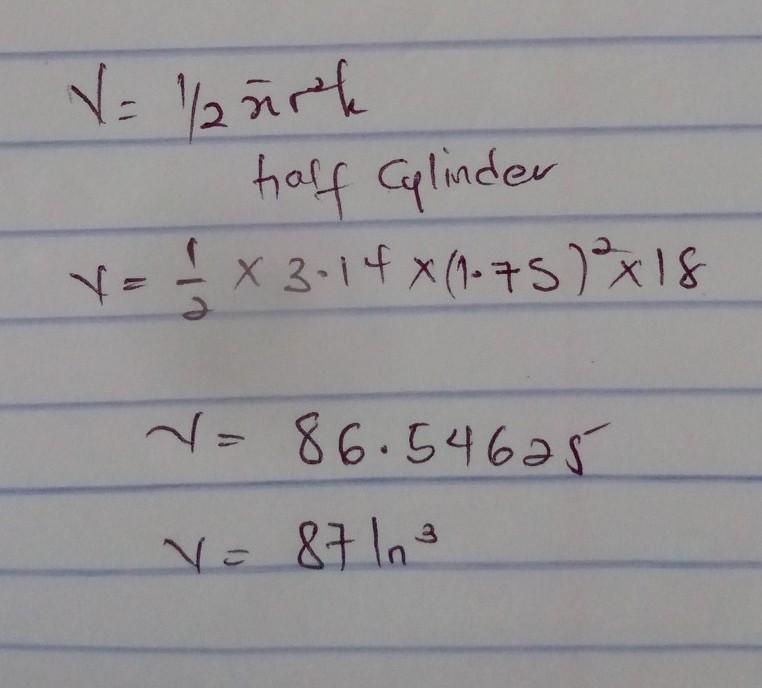 V = 1/2 πr²h
half Cylinder
V = 1/2 × 3.14 × (1.75)² × 18
V = 86.54625
V = 87 in³